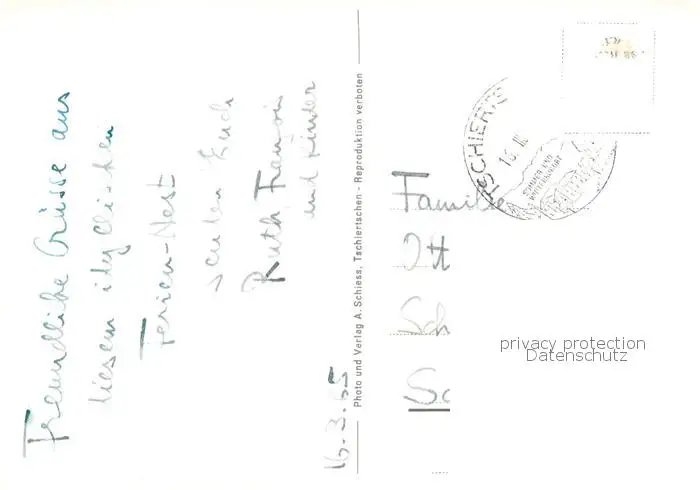 Freundliche Grüsse aus
diesem idyllischen
Ferien-Nest
senden Euch
Ruth François
und Kinder
16.3.65
Photo und Verlag A. Schiess, Tschiertschen - Reproduktion verboten
TSCHIERTS
15. III
SOMMER UND
WINTERKURORT
Familie
Ott
Sch
Sc
privacy protection
Datenschutz